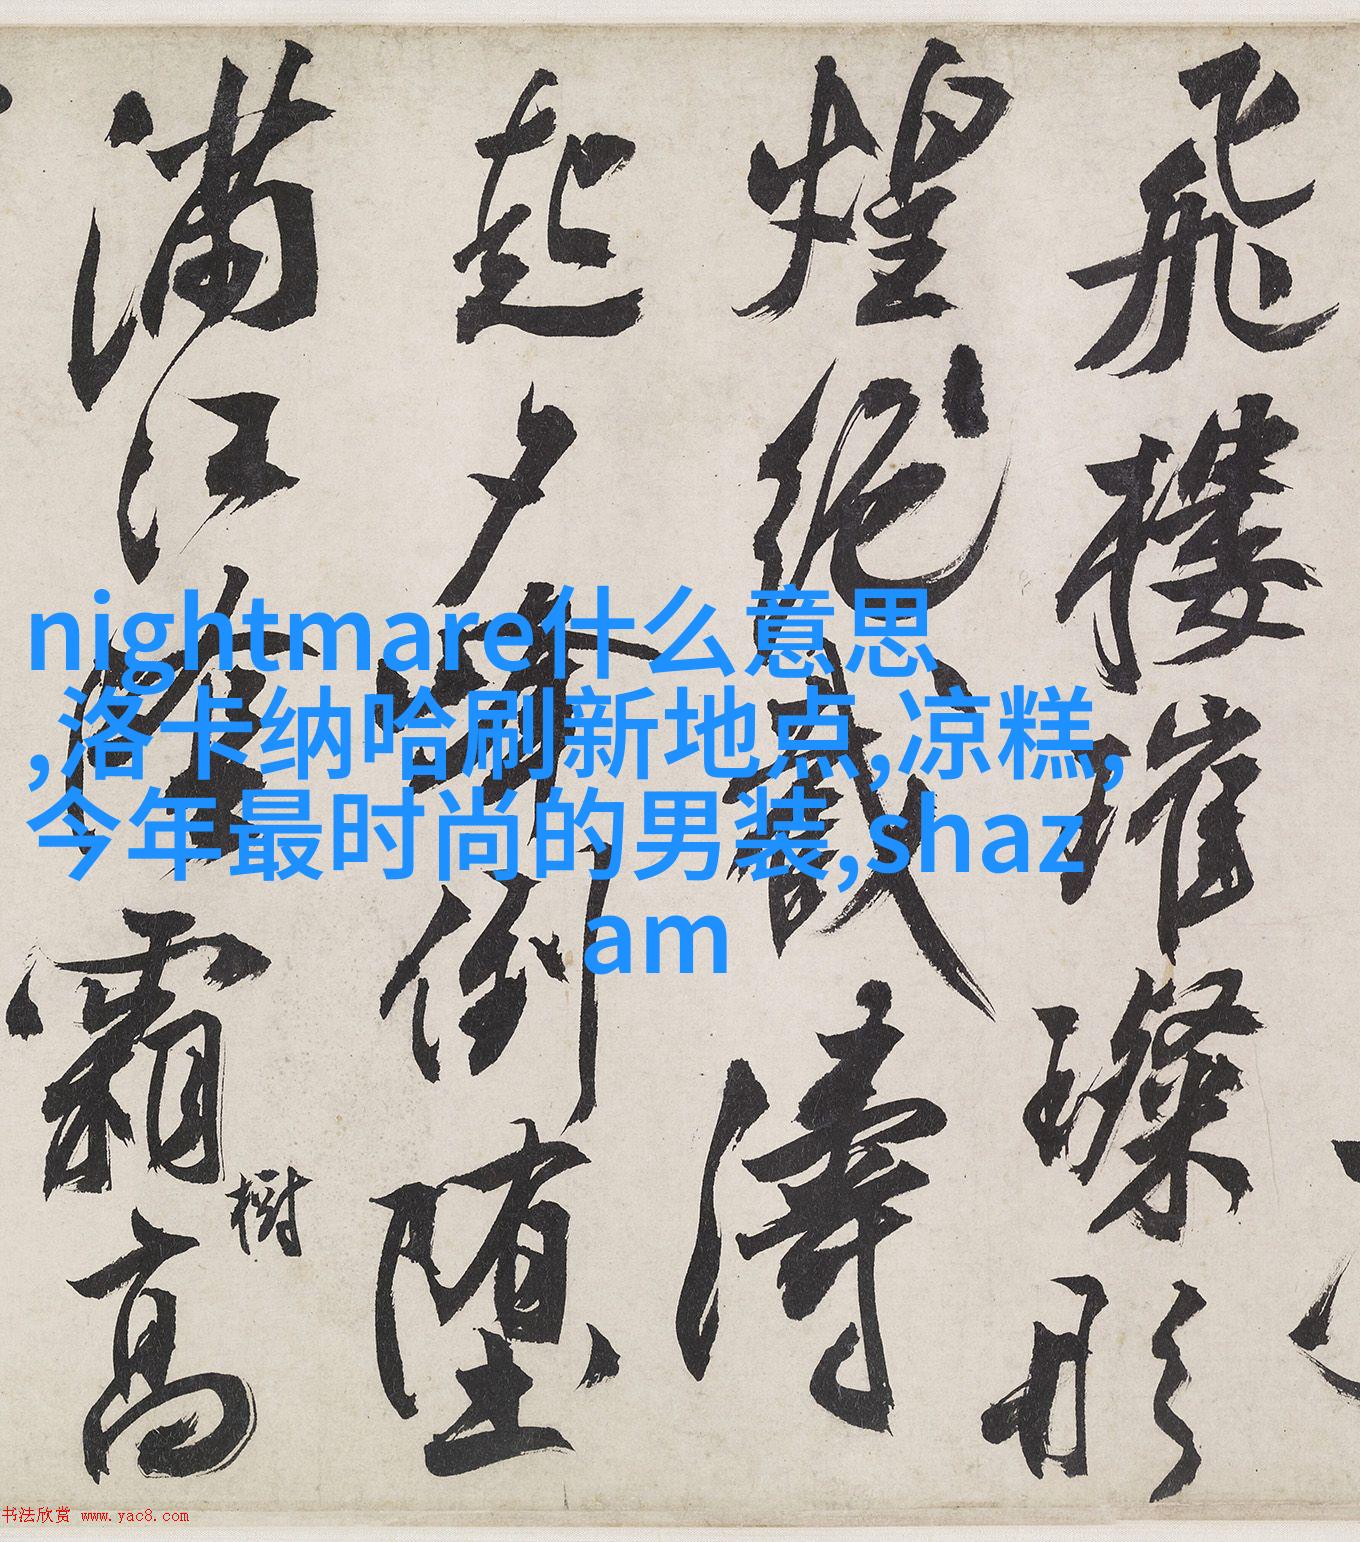 飛樓璀璨彤
煌絕濤
起夕倒墮
滿江霜高
樹
nightmare什么意思
,洛卡纳哈刷新地点,凉糕,
今年最时尚的男装,shaz
am
书法欣赏 www.yac8.com